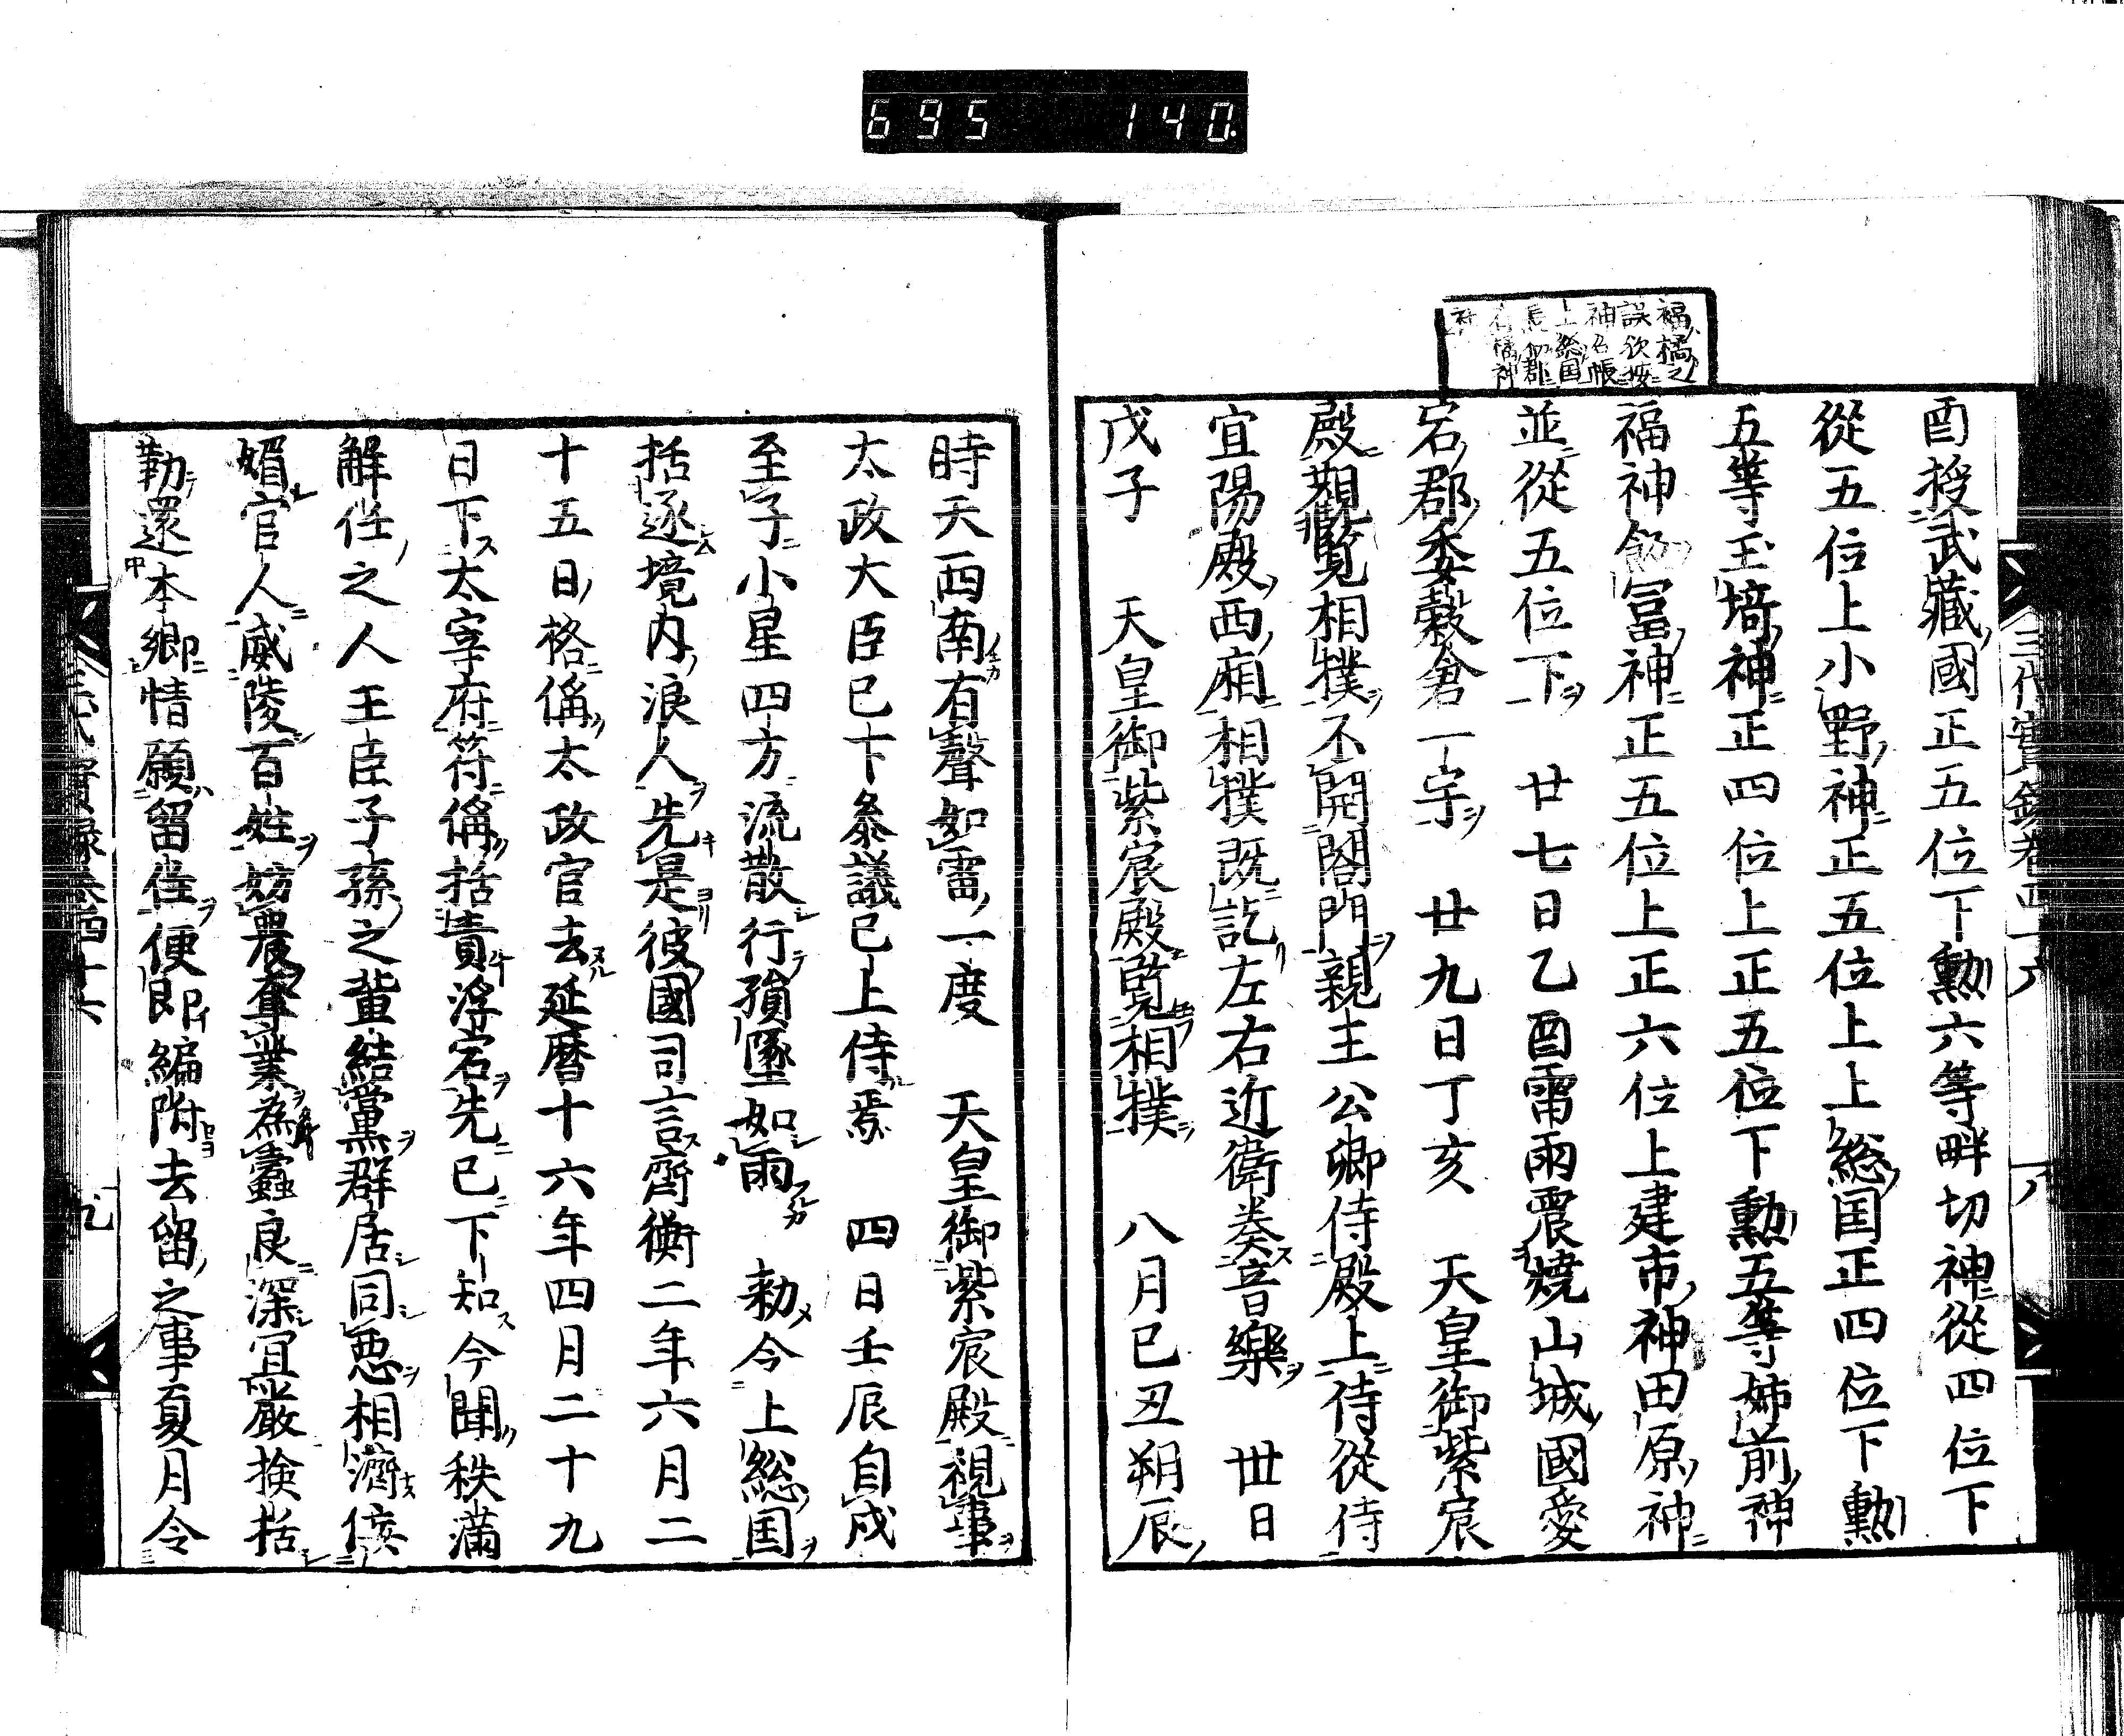 695 140
褔橘之
誤欤按
神名帳
上総国
馬加郡
橘神
社
酉授武藏國正五位下勳六等畔切神從四位下
從五位上小野神正五位上上総国正四位下勳
五等玉埼神正四位上正五位下勳五等姉前神
福神飫冨神正五位上正六位上建市神田原神
並從五位下 廿七日乙酉雷雨震燒山城國愛
宕郡委穀倉一宇 廿九日丁亥 天皇御紫宸
殿觀覽相撲不開閤門親王公卿侍殿上侍從侍
宜陽殿西廂相撲既訖左右近衛奏音樂 丗日
戊子 天皇御紫宸殿覽相撲 八月己丑朔辰
時天西南有聲如雷一度 天皇御紫宸殿視事
太政大臣已下叅議已上侍焉 四日壬辰自戌
至子小星四方流散行殞墜如雨 勅今上総国
括逐境内浪人先是彼國司言齊衡二年六月二
十五日格偁太政官去延暦十六年四月二十九
日下太宰府符偁括責浮宕先已下知今聞秩滿
解任之人王臣子孫之輩結黨群居同惡相濟侫
媚官人威陵百姓妨農奪業為蠹良深宜嚴捡括
勒還本鄉情願留住便即編附去留之事夏月令
三代實錄卷四十六 八
三代實録卷四十六 九